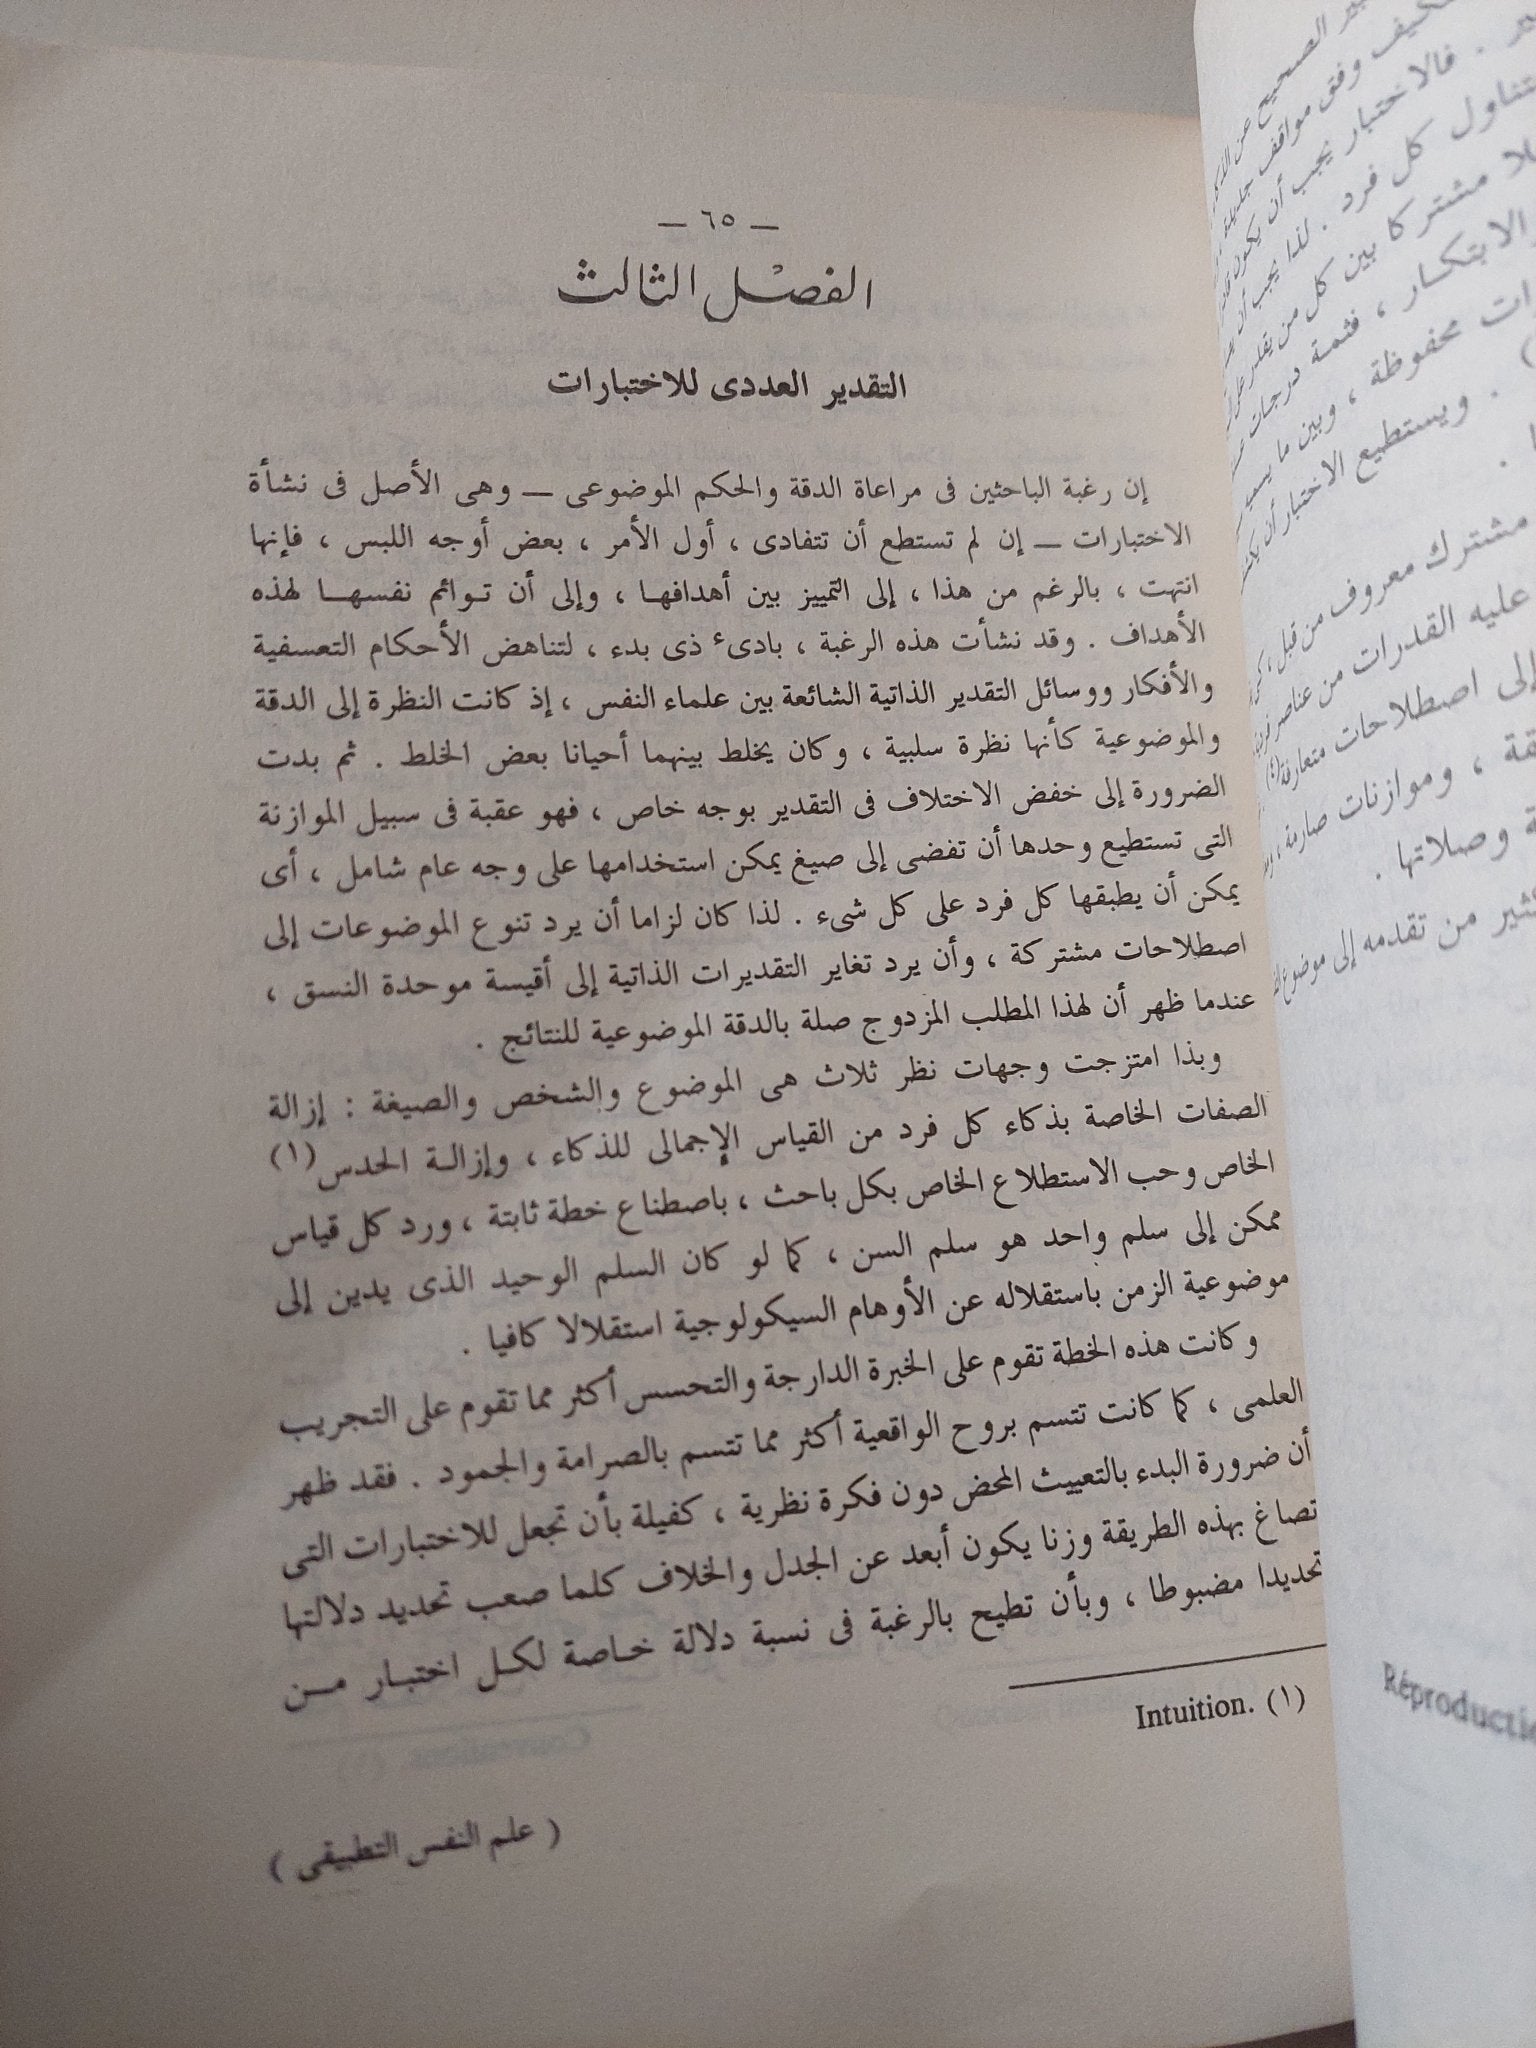 — ٦٥ —
الفصل الثالث
التقدير العددى للاختبارات
إن رغبة الباحثين فى مراعاة الدقة والحكم الموضوعى — وهى الأصل فى نشأة
الاختبارات — إن لم تستطع أن تتفادى ، أول الأمر ، بعض أوجه اللبس ، فإنها
انتهت ، بالرغم من هذا ، إلى التمييز بين أهدافها ، وإلى أن توائم نفسها لهذه
الأهداف . وقد نشأت هذه الرغبة ، بادىء ذى بدء ، لتناهض الأحكام التعسفية
والأفكار ووسائل التقدير الذاتية الشائعة بين علماء النفس ، إذ كانت النظرة إلى الدقة
والموضوعية كأنها نظرة سلبية ، وكان يخلط بينهما أحيانا بعض الخلط . ثم بدت
الضرورة إلى خفض الاختلاف فى التقدير بوجه خاص ، فهو عقبة فى سبيل الموازنة
التى تستطيع وحدها أن تفضى إلى صيغ يمكن استخدامها على وجه عام شامل ، أى
يمكن أن يطبقها كل فرد على كل شىء . لذا كان لزاما أن يرد تنوع الموضوعات إلى
اصطلاحات مشتركة ، وأن يرد تغاير التقديرات الذاتية إلى أقيسة موحدة النسق ،
عندما ظهر أن لهذا المطلب المزدوج صلة بالدقة الموضوعية للنتائج .
وبذا امتزجت وجهات نظر ثلاث هى الموضوع والشخص والصيغة : إزالة
الصفات الخاصة بذكاء كل فرد من القياس الإجمالى للذكاء ، وإزالة الحدس (١)
الخاص وحب الاستطلاع الخاص بكل باحث ، باصطناع خطة ثابتة ، ورد كل قياس
ممكن إلى سلم واحد هو سلم السن ، كما لو كان السلم الوحيد الذى يدين إلى
موضوعية الزمن باستقلاله عن الأوهام السيكولوجية استقلالا كافيا .
وكانت هذه الخطة تقوم على الخبرة الدارجة والتحسس أكثر مما تقوم على التجريب
العلمى ، كما كانت تتسم بروح الواقعية أكثر مما تتسم بالصرامة والجمود . فقد ظهر
أن ضرورة البدء بالتعييث المحض دون فكرة نظرية ، كفيلة بأن تجعل للاختبارات التى
تصاغ بهذه الطريقة وزنا يكون أبعد عن الجدل والخلاف كلما صعب تحديد دلالتها
تحديدا مضبوطا ، وبأن تطيح بالرغبة فى نسبة دلالة خاصة لكل اختبار من
(١) Intuition.
( علم النفس التطبيقى )
الصحيح عن
وفق مواقف جديدة
. فالاختبار يجب أن يكون
كل فرد . لذا يجب أن
مشتركا بين كل من يقدر على
الابتكار ، فثمة درجات
محفوظة ، وبين ما يسمى
. ويستطيع الاختبار أن
مشترك معروف من قبل ،
عليه القدرات من عناصر
إلى اصطلاحات متعارفة (٤)
، وموازنات صارمة ،
وصلاتها .
من تقدمه إلى موضوع